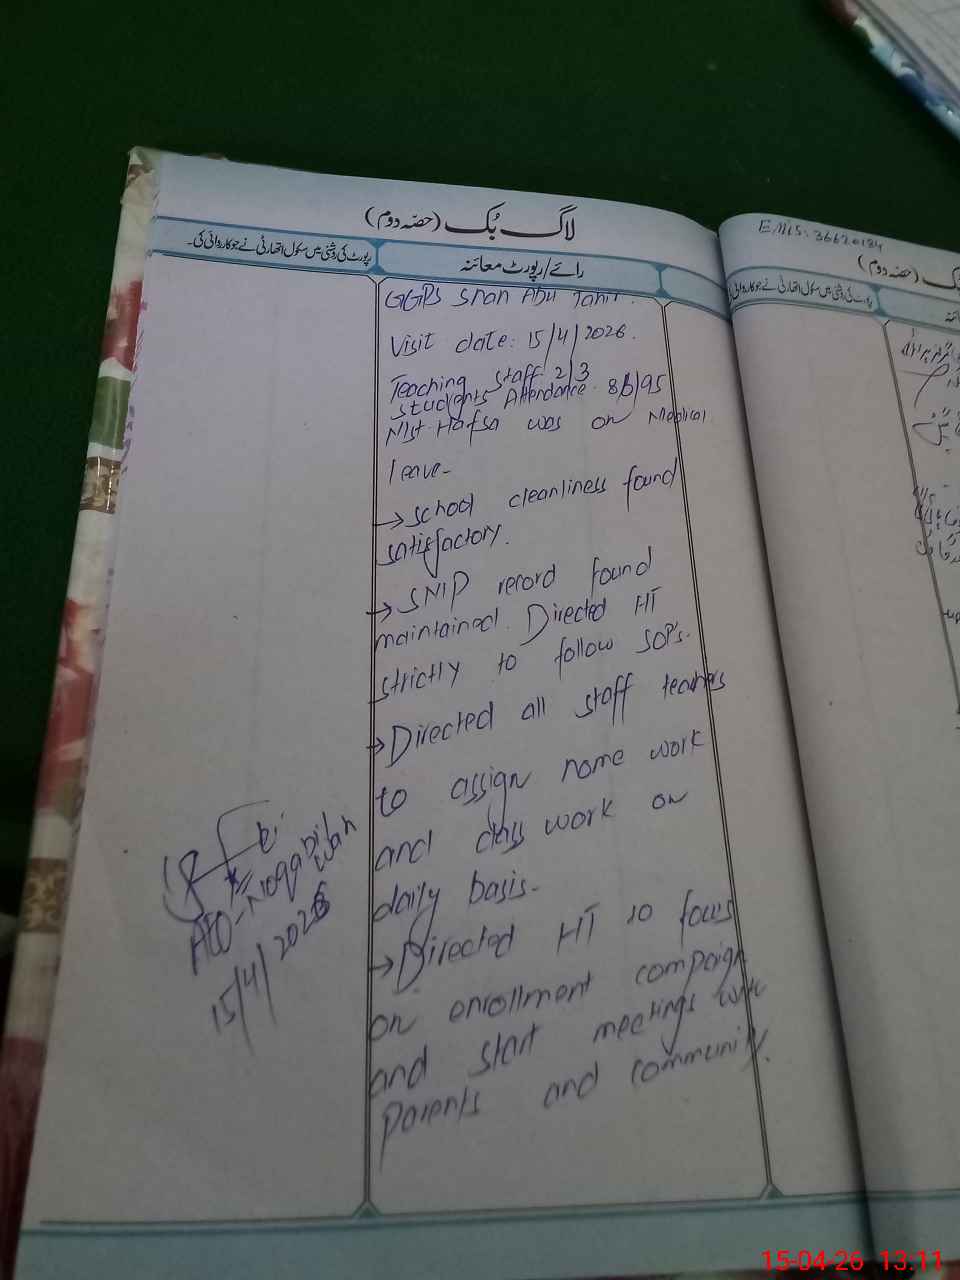 لاگ بُک (حصّہ دوم)
رپورٹ کی روشنی میں سکول اتھارٹی نے جو کاروائی کی۔
رائے/رپورٹ معائنہ
GGPS Shah Abu Tahir.
Visit date: 15/4/2026.
Teaching Staff: 2/3
Students Attendance
Mst Hafsa was on Medical
leave-
→ School cleanliness found
satisfactory.
→ SNIP record found
maintained. Directed HT
strictly to follow SOP's.
→ Directed all staff teachers
to assign home work
and class work on
daily basis-
→ Directed HT to focus
on enrollment campaign
and start meetings with
Parents and community.
15/4/2026
EMIS: 36620134
(حصّہ دوم)
رپورٹ کی روشنی میں سکول اتھارٹی نے جو کاروائی کی
15-04-26 13:11